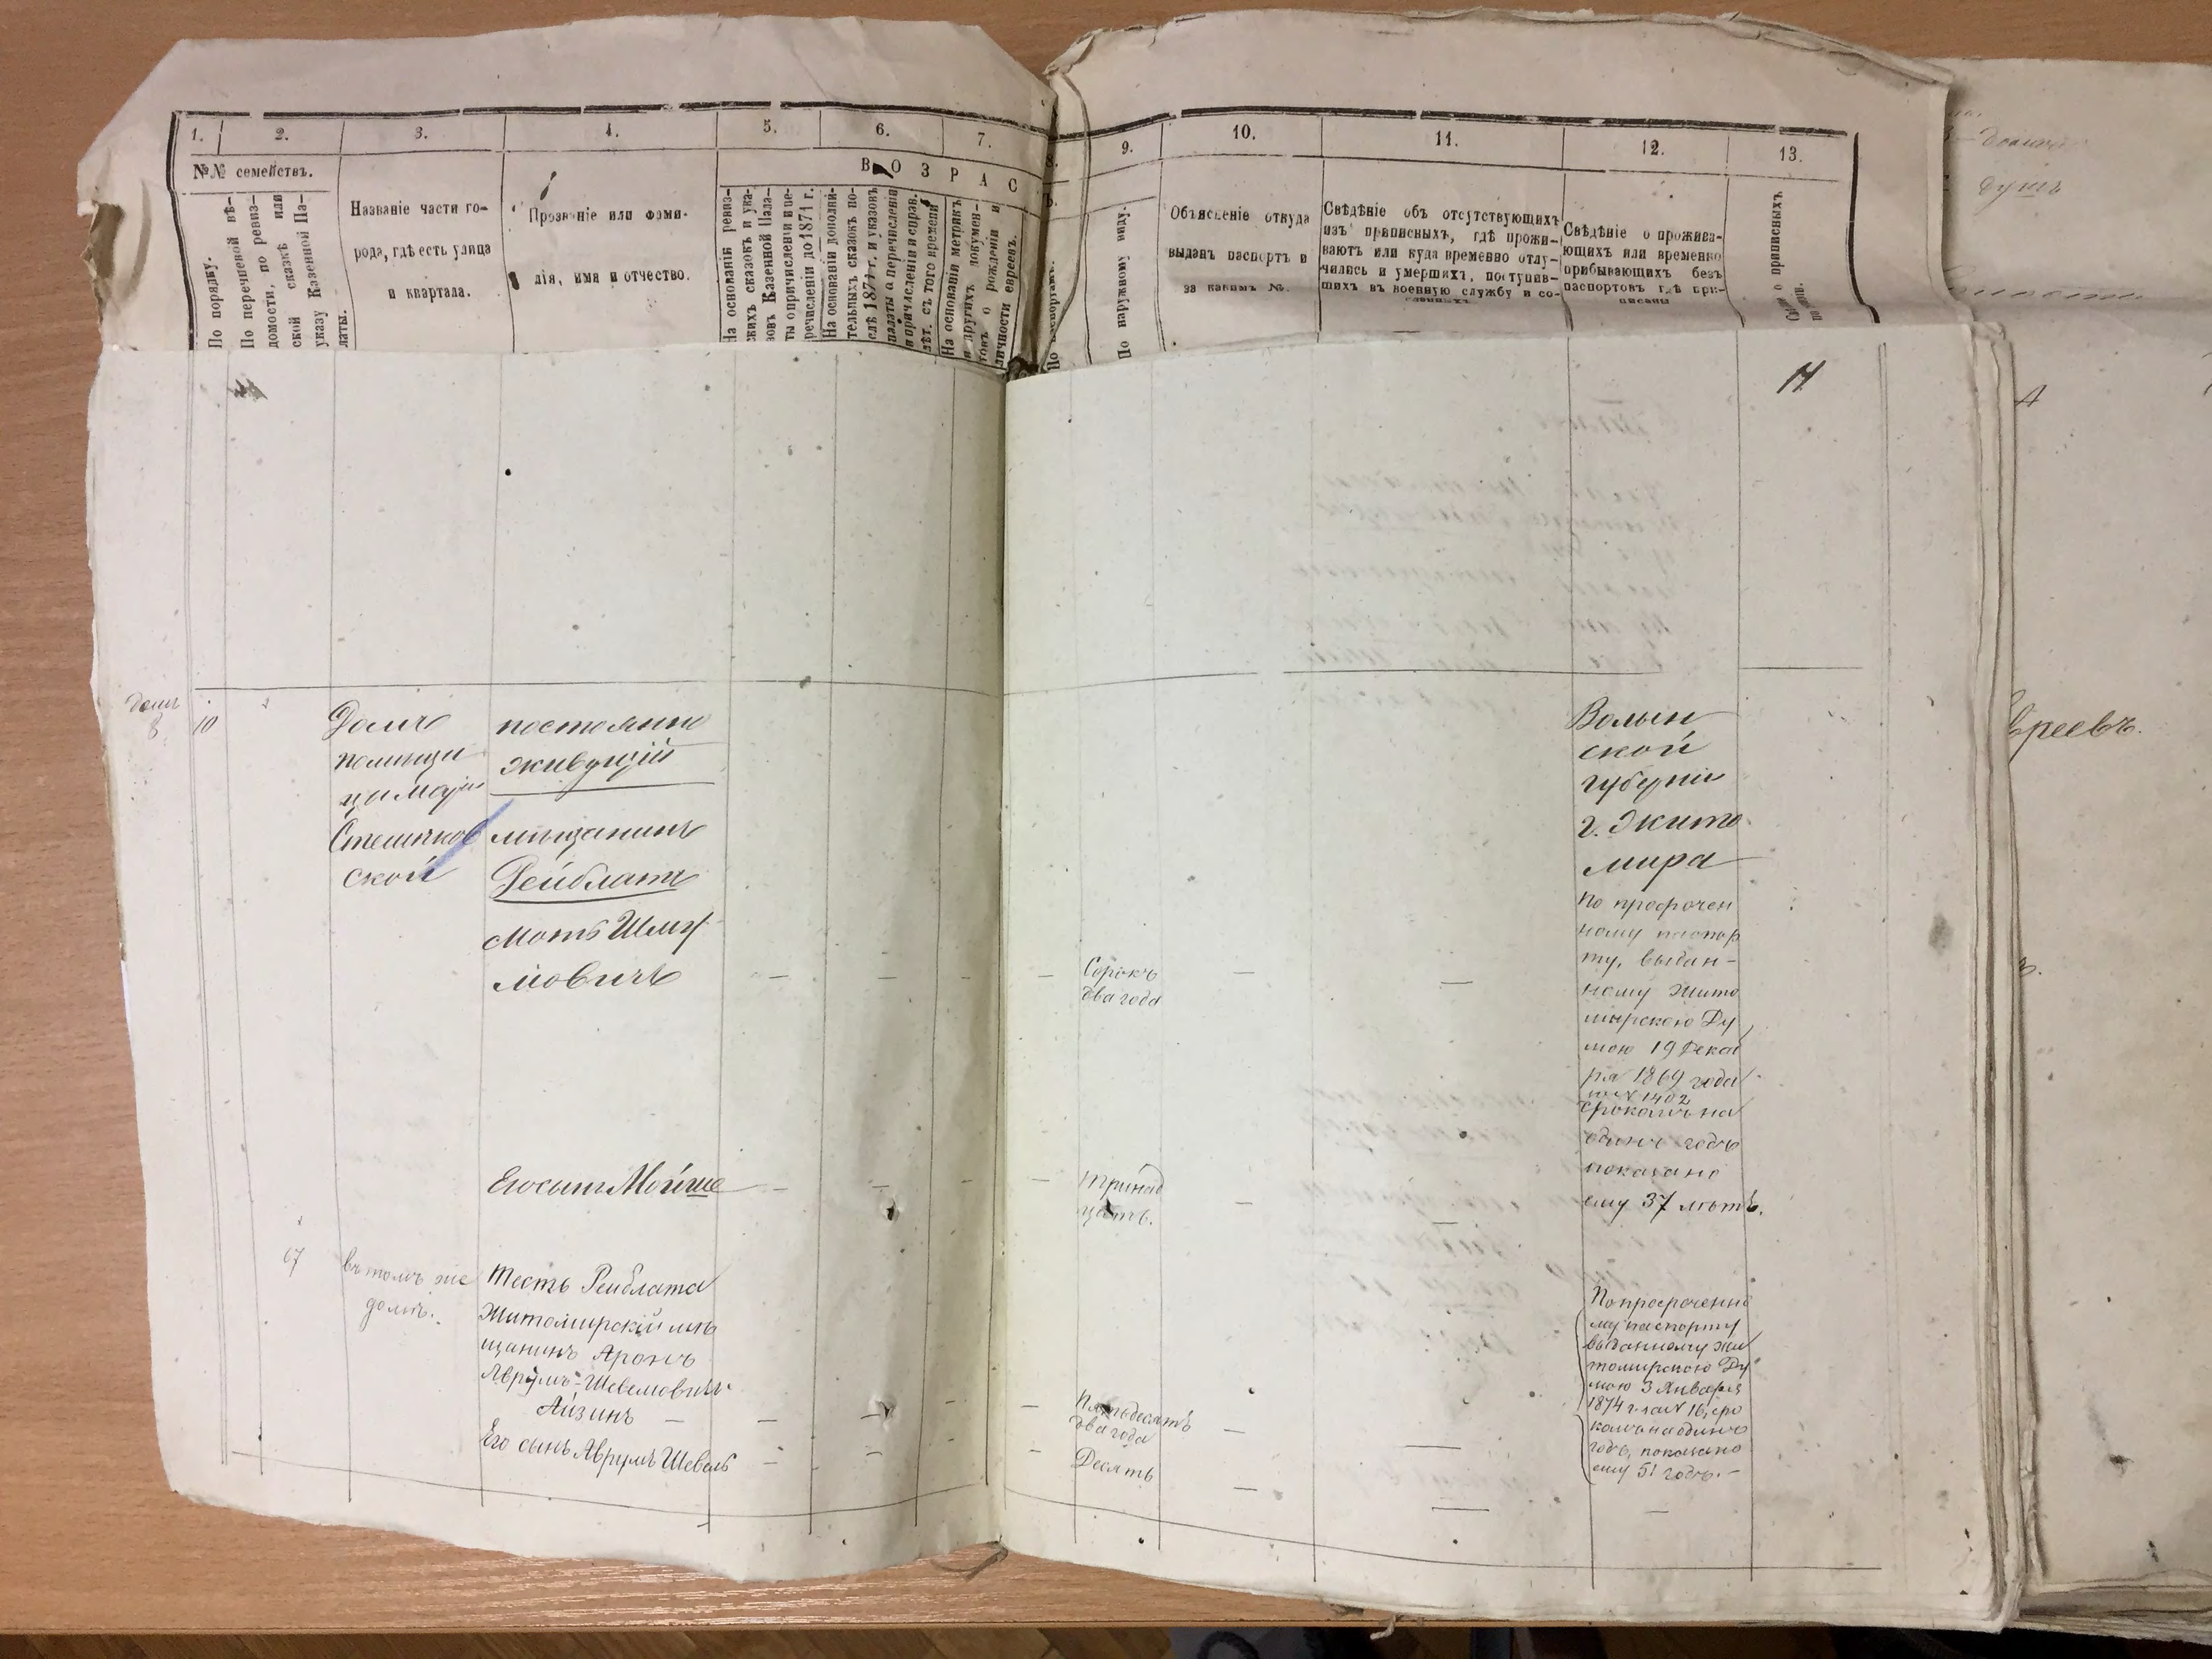 1.
2.
3.
4.
5.
6.
7.
8.
9.
10.
11.
12.
13.
№№ семействъ.
В О З Р А С
Ъ.
По порядку.
По перечневой вѣ-
домости, по ревиз-
ской сказкѣ или
указу Казенной Па-
латы.
Названіе части го-
рода, гдѣ есть улица
и квартала.
Прозвніе или фами-
лія, имя и отчество.
На основаніи ревиз-
скихъ сказокъ и ука-
зовъ Казенной Пала-
ты о причисленіи и пе-
речисленіи до 1871 г.
На основаніи дополни-
тельныхъ сказокъ по-
слѣ 1871 г. и указовъ
палаты о перечисленіи
и причисленіи и справ.
лѣт. съ того времени
На основаніи метрикъ
и другихъ докумен-
товъ о рожденіи и
личности евреевъ.
По паспортамъ.
По наружному виду.
Объясненіе откуда
выданъ паспортъ и
за какимъ №.
Свѣдѣніе объ отсутствующихъ
изъ приписныхъ, гдѣ прожи-
ваютъ или куда временно отлу-
чились и умершихъ, поступив-
шихъ въ военную службу и со-
Свѣдѣніе о прожива-
ющихъ или временно
прибывающихъ безъ
паспортовъ гдѣ при-
писаны
о приписныхъ
14
домъ
8
10
Домъ
помѣщи
цы Маріи
Стешковской
постоянно
живущій
мѣщанинъ
Рейблатъ
Мотъ Шму
ловичъ
Сорокъ
два года
Волын
ской
губерніи
г. Жито
мира
по просрочен
ному паспор
ту, выдан-
ному Жито
мирскою Ду
мою 19 Декаб
ря 1869 года
за № 1402
срокомъ на
одинъ годъ
показано
ему 37 лѣтъ.
Его сынъ Мойше
тринад
цать.
67
въ томъ же
домѣ.
Тесть Рейблата
Житомирскій мѣ
щанинъ Аронъ
Аврумъ-Шевелювичъ
Айзинъ
Пятьдесятъ
два года
По просроченно
му паспорту
выданному Жи
томирскою Ду
мою 3 Января
1874 г. за № 16, сро
комъ на одинъ
годъ, показано
ему 51 годъ.
Его сынъ Аврумъ Шевель
Десять
душъ
евреевъ.